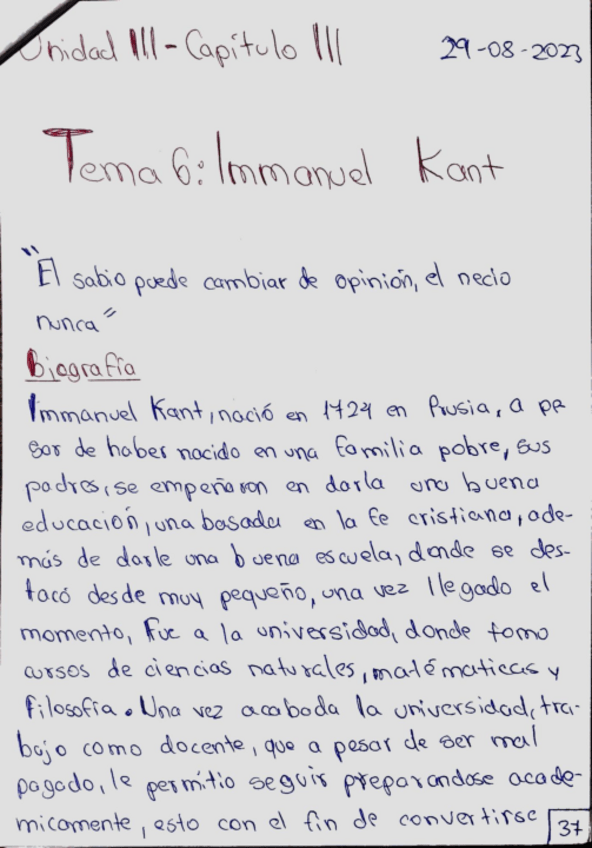 Unidad III - Capítulo III
29-08-2023
Tema 6: Immanuel Kant
"El sabio puede cambiar de opinión, el necio
nunca"
Biografía
Immanuel Kant, nació en 1724 en Prusia, a pe
sar de haber nacido en una familia pobre, sus
padres, se empeñaron en darla una buena
educación, una basada en la fe cristiana, ade-
más de darle una buena escuela, donde se des-
tacó desde muy pequeño, una vez llegado el
momento, fue a la universidad, donde tomo
cursos de ciencias naturales, matématicas y
filosofía. Una vez acabada la universidad, tra-
bajo como docente, que a pesar de ser mal
pagado, le permitio seguir preparandose acade-
micamente, esto con el fin de convertirse
37